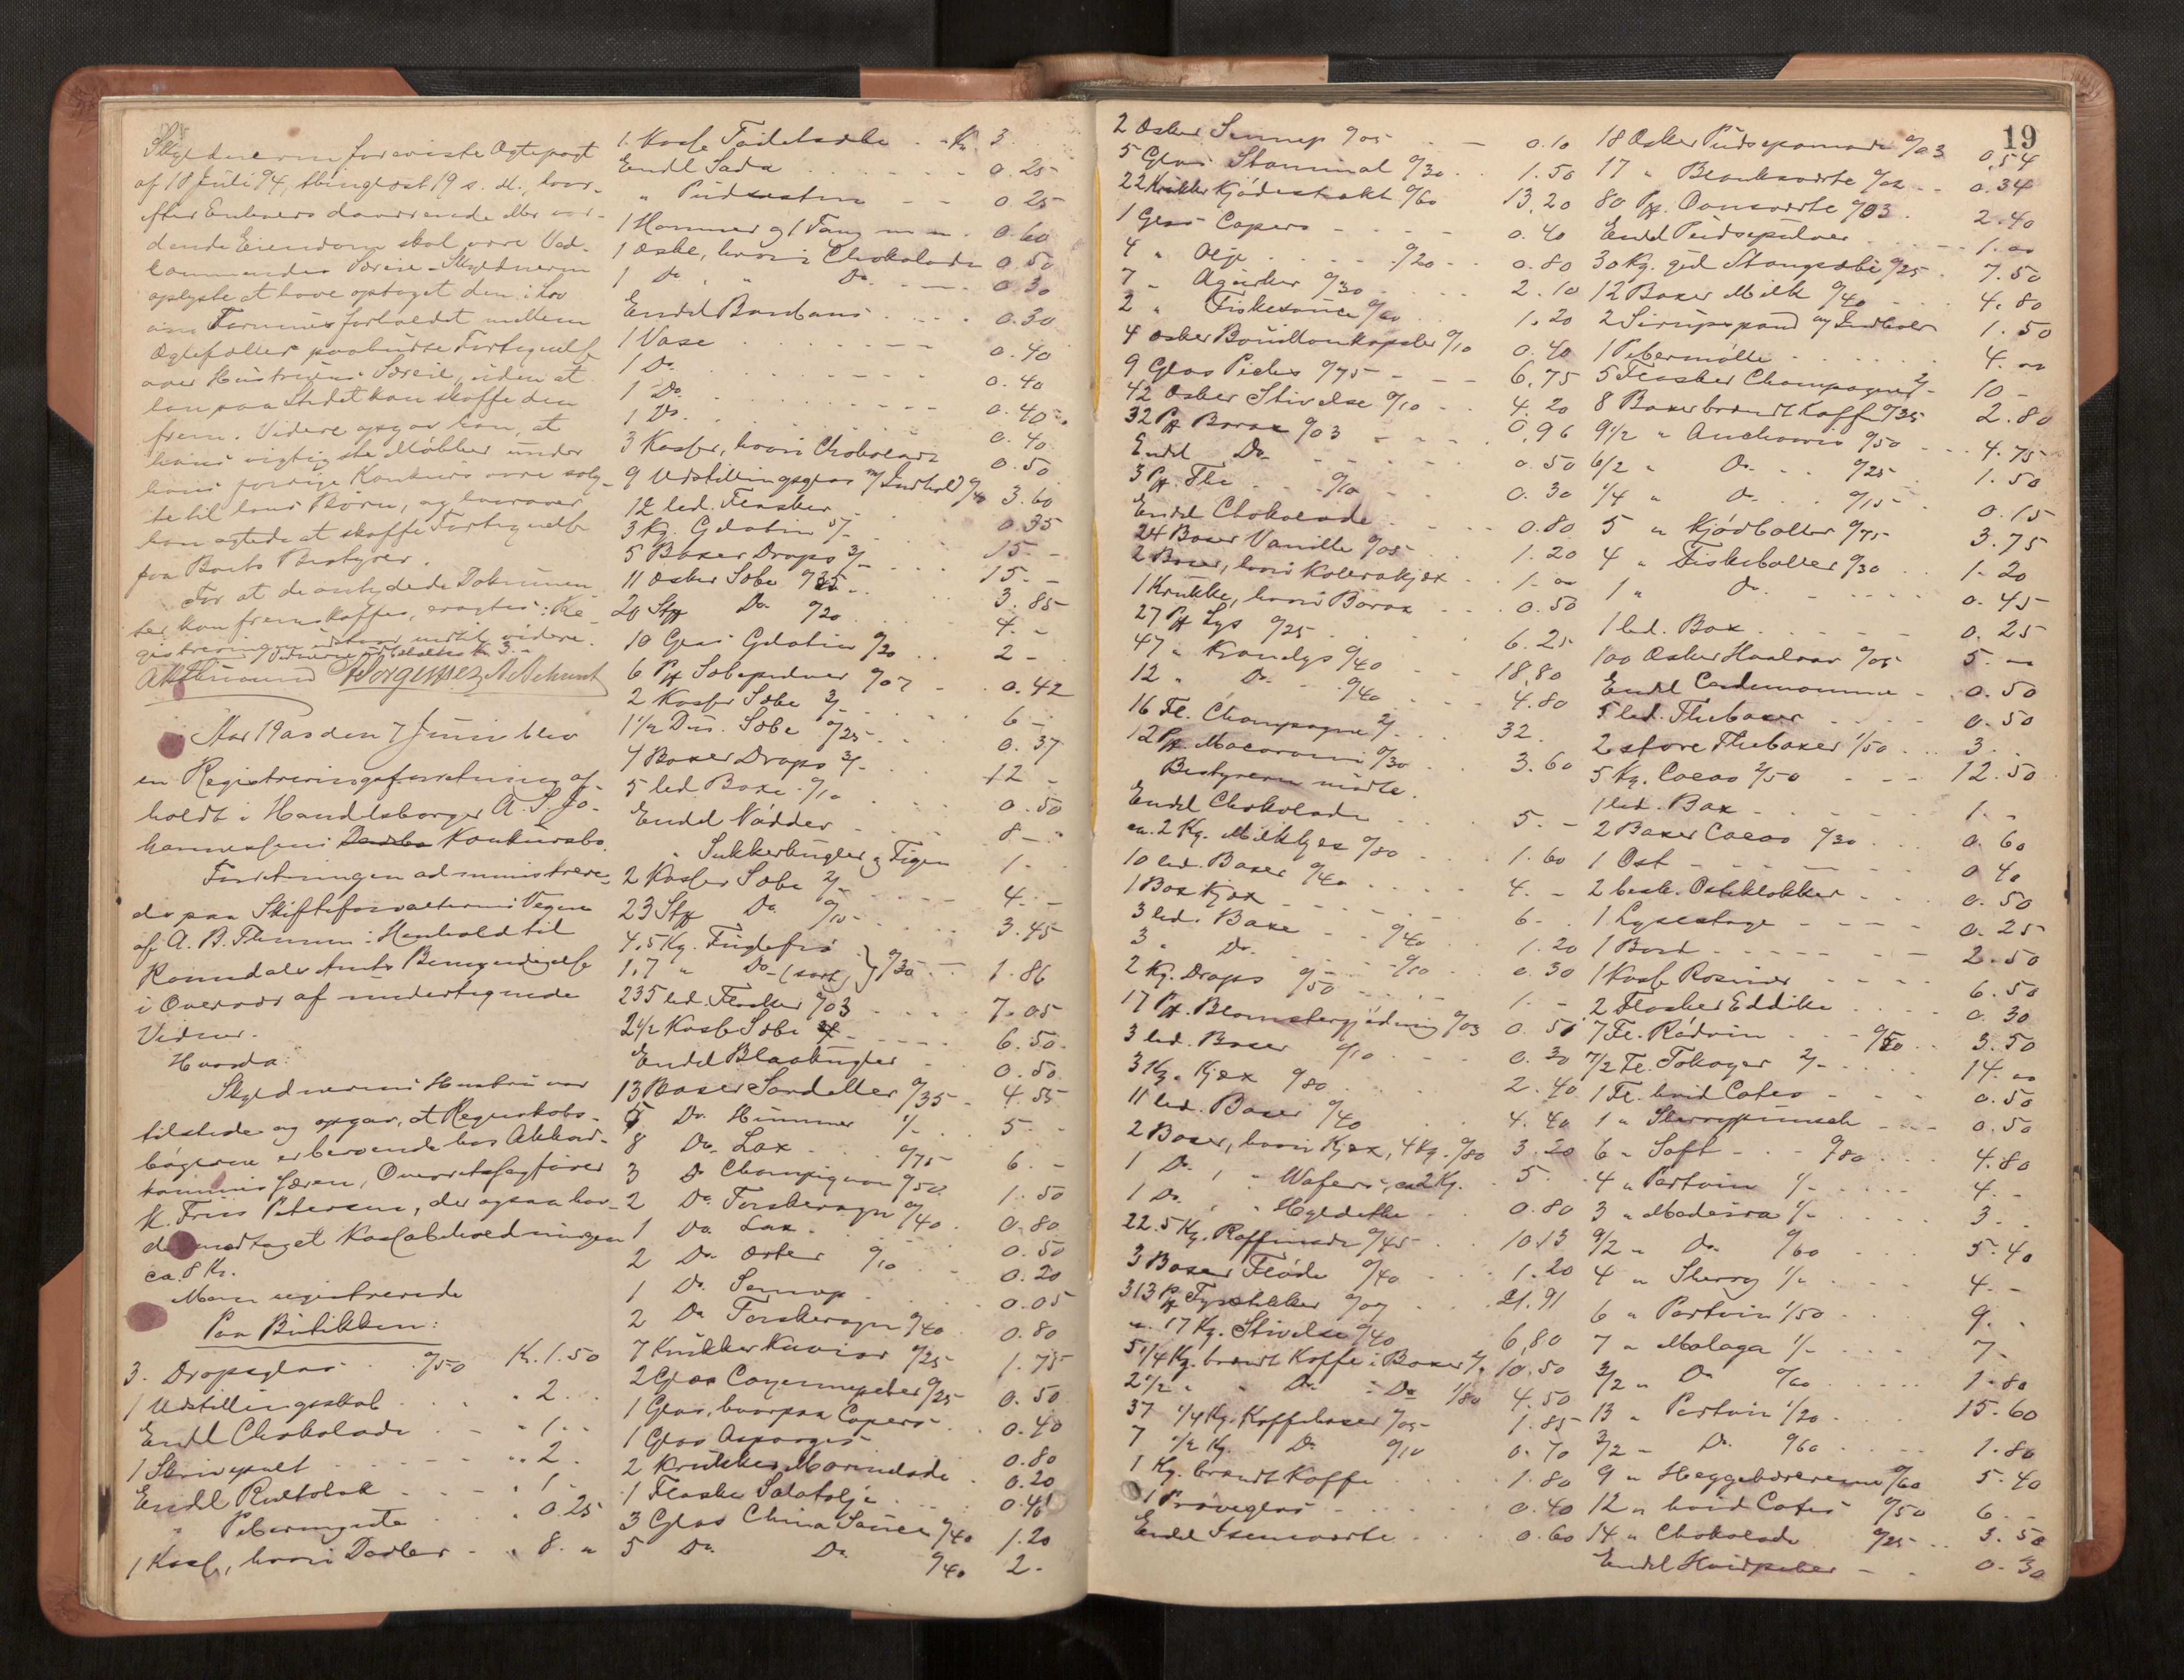 Skyldneren foreviste Ægtepagt
af 18 Juli 94, thinglæst 19 s. M., hvor-
efter Enhvers daværende eller vor-
dende Eiendom skal være Ved-
kommendes Særeie. Skyldneren
oplyste at have optaget den i Lov
om Formuesforholdet mellem
Ægtefæller paabudte Fortegnelse
over Hustruens Særeie, uden at
han paa Stedet kan skaffe den
frem. Videre opgav han, at
hans vigtigste Møbler under
hans forrige Konkurs vare solg-
te til hans Børn, og hvorover
han agtede at skaffe Fortegnelse
fra Boets Bestyrer.
For at de antydede Dokumen-
ter kan fremskaffes, : Re-
gistreringen indtil videre.
Vidnerne Kr. 3.-
Aar 1900 den 7 Juni blev
en Registreringsforretning af-
holdt i Handelsborger A. S. Jo-
hannessens Konkursbo.
Forretningen administrere-
des paa Skifteforvalterens Vegne
af A. B. Thesen i Henhold til
Romsdals Amts Bemyndigelse
i Overvær af undertegnede
Vidner.
Hvorda:
Skyldnerens Hustru var
tilstede og opgav, at Regnskabs-
bøgerne er beroende hos Akkord-
kommissæren, Overretssagfører
K. Friis Petersen, der ogsaa hav-
de modtaget Kassabeholdningen
ca. 8 Kr.
Man registrerede
Paa Butikken:
3. Dropsglas %50 Kr. 1.50
1 Udstillingsskab " 2.
Endel Chokolade " 1.-
1 Skrivepult " 2.
Endel Rultobak " 1.-
" Pebermynte " 0.25
1 Kasse, hvori Dadler " 8. "
1 Kasse Toiletsæbe Kr. 3.
Endel Soda 0.25
" Pudsesten 0.25
1 Hammer og 1 Tang m. m. 0.60
1 Æske, hvori Chokolade 0.50
1 Do " Do 0.30
Endel Bonbons 0.30
1 Vase 0.40
1 Do. 0.40
1 Do. 0.40
1 Do. 0.40
3 Kasser, hvori Chokolade 0.50
9 Udstillingsglas m/ Indhold %40 3.60
12 led. Flasker 0.35
3 Kg. Gelatin 5/- 15.-
5 Boxer Drops 3/- 15.-
11 Æsker Sæbe %35 3.85
20 Stk Do %20 4.-
10 Glas Gelatin %20 2-
6 Pk Sæbepulver %07 0.42
2 Kasser Sæbe 3/- 6-
1 1/2 Dus. Sæbe %25 0.37
4 Boxer Drops 3/- 12-
5 led. Boxe %10 0.50
Endel Nødder 8-
" Sukkerkugler og Figen 1.
2 Kasser Sæbe 2/- 4.-
23 Stk Do. %15 3.45
4,5 Kg. Fuglefrø
1,7 " Do (sort) } %30 1.86
235 led. Flasker %03 7.05
2 1/2 Kasse Sæbe 6.50
Endel Blaakugler 0.50
13 Boxer Sardeller %35 4.55
5 Do. Hummer 1/- 5-
8 Do. Lax %75 6.-
3 Do Champignon %50 1.50
2 Do. Torskerogn %40 0.80
1 Do. Lax 0.50
2 Do. Erter %10 0.20
1 Do. Sennep 0.05
2 Do Torskerogn %40 0.80
7 Krukker Kaviar %25 1.75
2 Glas Cayennepeber %25 0.50
1 Glas, hvorpaa Capers 0.40
1 Glas Asparges 0.80
2 Krukker Marmelade 0.20
1 Flaske Salatolje 0.40
3 Glas China Sauce %40 1.20
5 Do. Do. %40 2.
19
2 Æsker Sennep %05 0.10
5 Glas %30 1.50
22 Krukker Kjødextrakt %60 13.20
1 Glas Capers 0.40
4 " Olje %20 0.80
7 " Agurker %30 2.10
2 " Fiskesauce %60 1.20
4 Æsker Bouillonkapsler %10 0.40
9 Glas Pickles %75 6.75
42 Æsker Stivelse %10 4.20
32 Pk Borax %03 0.96
Endel Do. 0.50
3 Pk. The %10 0.30
Endel Chokolade 0.80
24 Boxer Vanille %05 1.20
2 Boxer, hvori Kolerakjex 1.00
1 Krukke, hvori Borax 0.50
27 Pk Lys %25 6.25
47 " Kronlys %40 18.80
12 " Do. %40 4.80
16 Fl. Champagne 2/- 32.
12 Pk. Macaroni %30 3.60
Bestyreren mødte.
Endel Chokolade 5.-
ca. 2 Kg. Milkkjex %80 1.60
10 led. Boxer %40 4.-
1 Box Kjex 6-
3 led. Boxe %40 1.20
3 " Do. %10 0.30
2 Kg. Drops %50 1.-
17 Pk. Blomstergjødning %03 0.51
3 led. Boxer %10 0.30
3 Kg. Kjex %80 2.40
11 led. Boxer %40 4.40
2 Boxer, hvori Kjex, 4 Kg. %80 3.20
1 Do. " Wafers, ca 2 Kg. 5.
1 Do. " Hyldethe 0.80
22.5 Kg. Raffinade %45 10.13
3 Boxer Fløde %40 1.20
313 Pk Fyrstikker %07 21.91
ca. 17 Kg. Stivelse %40 6,80
5 1/4 Kg. brændt Kaffe i Boxer 2/- 10.50
2 1/2 " Do. Do 1/80 4.50
37 1/4 Kg. Kaffeboxer %05 1.85
7 1/2 Kg. Do. %10 0.70
1 Kg. brændt Kaffe 1.80
1 Prøveglas 0.40
Endel Isenværte 0.60
18 Æsker Pudsepomade %03 0,54
17 " Blanksværte %02 0.34
80 Pk. Ovnsværte %03 2.40
Endel Pudsepulver 1.00
30 Kg. gul Stangsæbe %25 7.50
12 Boxer Milk %40 4.80
2 Sirupspand og Indhold 1.50
1 Pebermølle 4.00
5 Flasker Champagne 2/- 10-
8 Boxer brændt Kaffe %35 2.80
9 1/2 " Anchovis %50 4.75
6/2 " Do. %25 1.50
1/4 " Do. %15 0.15
5 " Kjødboller %75 3.75
4 " Fiskeboller %30 1.20
1 " Do. 0.45
1 led. Box 0.25
100 Æsker Haarvax %05 5.-
Endel Cardemomme 0.50
5 led. Theboxer 0.50
2 store Theboxer 1/50 3.
5 Kg. Cacao 2/50 12.50
1 led. Box 1.-
2 Boxer Cacao %30 0.60
1 Ost 0.40
2 besk. Osteklokker 0.50
1 Lysestage 0.25
1 Bord 2.50
1 Kasse Rosiner 6.50
2 Flasker Eddike 0.30
7 Fl. Rødvin %50 3.50
7/2 Fl. Tokayer 2/- 14.00
1 Fl. hvid Cotes 0.50
1 " Sherrypunsch 0.50
6 " Saft %80 4.80
4 " Portvin 1/- 4.-
3 " Madeira 1/- 3.-
9/2 " Do. %60 5.40
4 " Sherry 1/- 4.-
6 " Portvin 1/50 9.-
7 " Malaga 1/- 7-
3/2 " Do %60 1.80
13 " Portvin 1/20 15.60
3/2 " Do. %60 1.80
9 " Heggebærcreme %60 5.40
12 " hvid Cotes %50 6.-
14 " Chokolade %25 3.50
Endel Hvidpeber 0.30